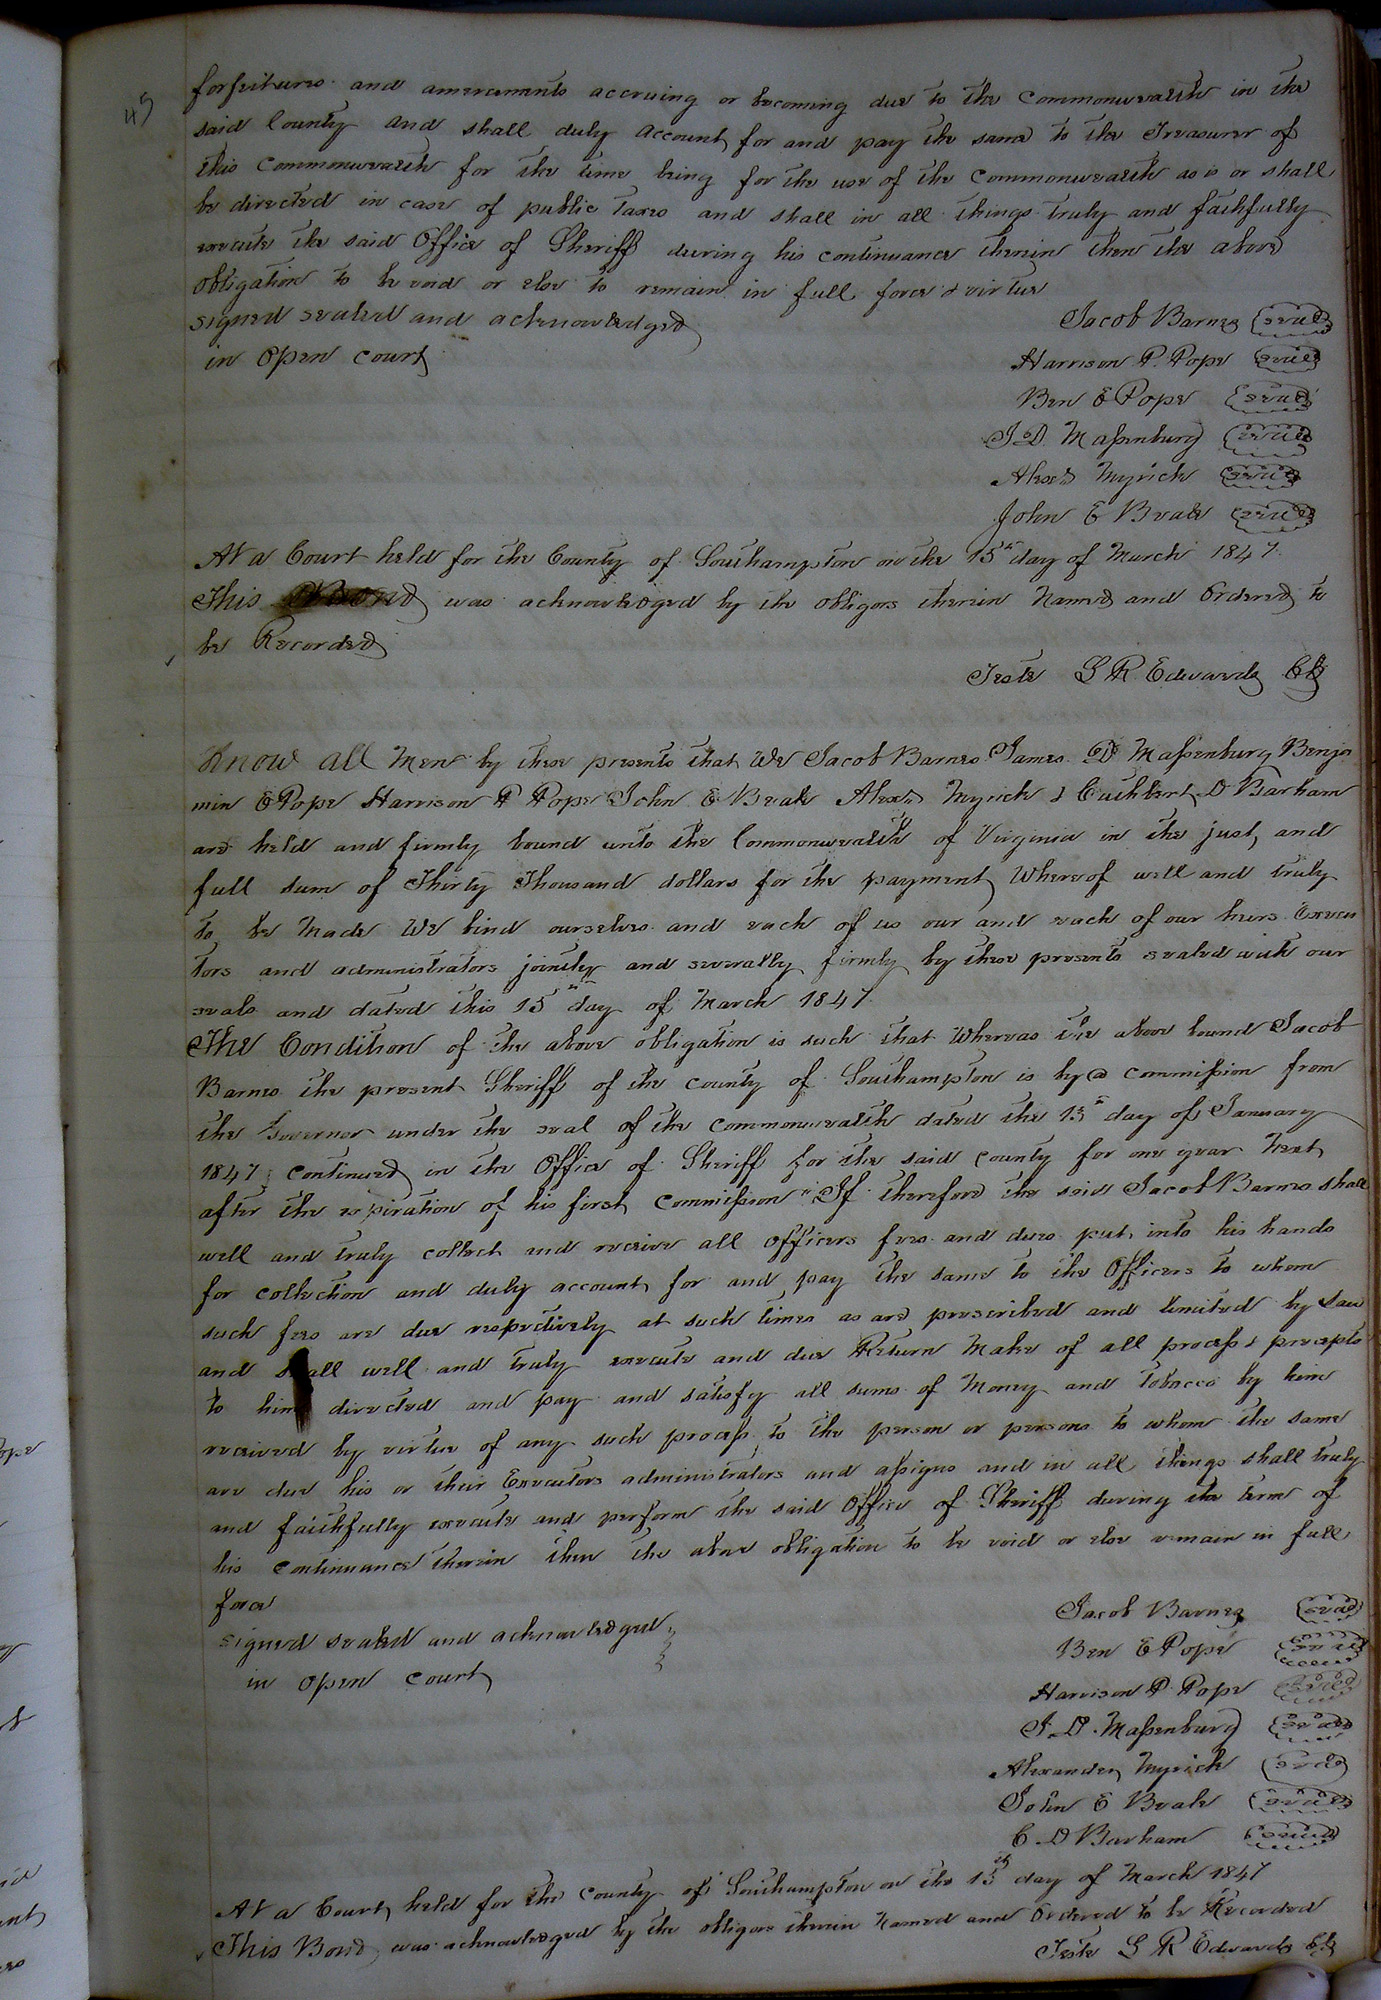 45
forfeitures and amercements accruing or becoming due to the Commonwealth in the
said County and shall duly account for and pay the same to the Treasurer of
this Commonwealth for the time being for the use of the Commonwealth as is or shall
be directed in case of public taxes and shall in all things truly and faithfully
execute the said Office of Sheriff during his continuance therein then the above
obligation to be void or else to remain in full force & virtue
signed sealed and acknowledged
in Open Court
Jacob Barnes seal
Harrison P. Pope seal
Ben E Pope seal
J. D. Maſsenburg seal
Alexr Myrick seal
John E Beale seal
At a Court held for the County of Southampton on the 15th day of March 1847.
This Bond was acknowledged by the obligors therein Named and Ordered to
be Recorded
Teste L R Edwards Clk
Know all Men by these presents that We Jacob Barnes James D Maſsenburg Benja
min E Pope Harrison P Pope John E Beale Alexr Myrick & Cuthbert D Barham
are held and firmly bound unto the Commonwealth of Virginia in the just and
full sum of Thirty Thousand dollars for the payment Whereof well and truly
to be Made We bind ourselves and each of us our and each of our heirs Execu
tors and administrators jointly and severally firmly by these presents sealed with our
seals and dated this 15th day of March 1847.
The Condition of the above obligation is such that Whereas the above bound Jacob
Barnes the present Sheriff of the county of Southampton is by a commiſsion from
the Governor under the seal of the commonwealth dated the 13th day of January
1847 continued in the Office of Sheriff for the said county for one year Next
after the expiration of his first Commiſsion If therefore the said Jacob Barnes shall
well and truly collect and receive all Officers fees and dues put into his hands
for collection and duly account for and pay the same to the Officers to whom
such fees are due respectively at such times as are prescribed and limited by Law
and shall well and truly execute and due Return Make of all proceſs & precepts
to him directed and pay and satisfy all sums of Money and Tobacco by him
received by virtue of any such proceſs to the person or persons to whom the same
are due his or their Executors administrators and aſsigns and in all things shall truly
and faithfully execute and perform the said Office of Sheriff during the term of
his continuance therein then the above obligation to be void or else remain in full
force
signed sealed and acknowledged
in open Court
Jacob Barnes seal
Ben E Pope seal
Harrison P. Pope seal
J. D. Maſsenburg seal
Alexander Myrick seal
John E Beale seal
C. D Barham seal
At a Court held for the County of Southampton on the 15th day of March 1847
This Bond was acknowledged by the obligors therein Named and Ordered to be Recorded
Teste L R Edwards Clk